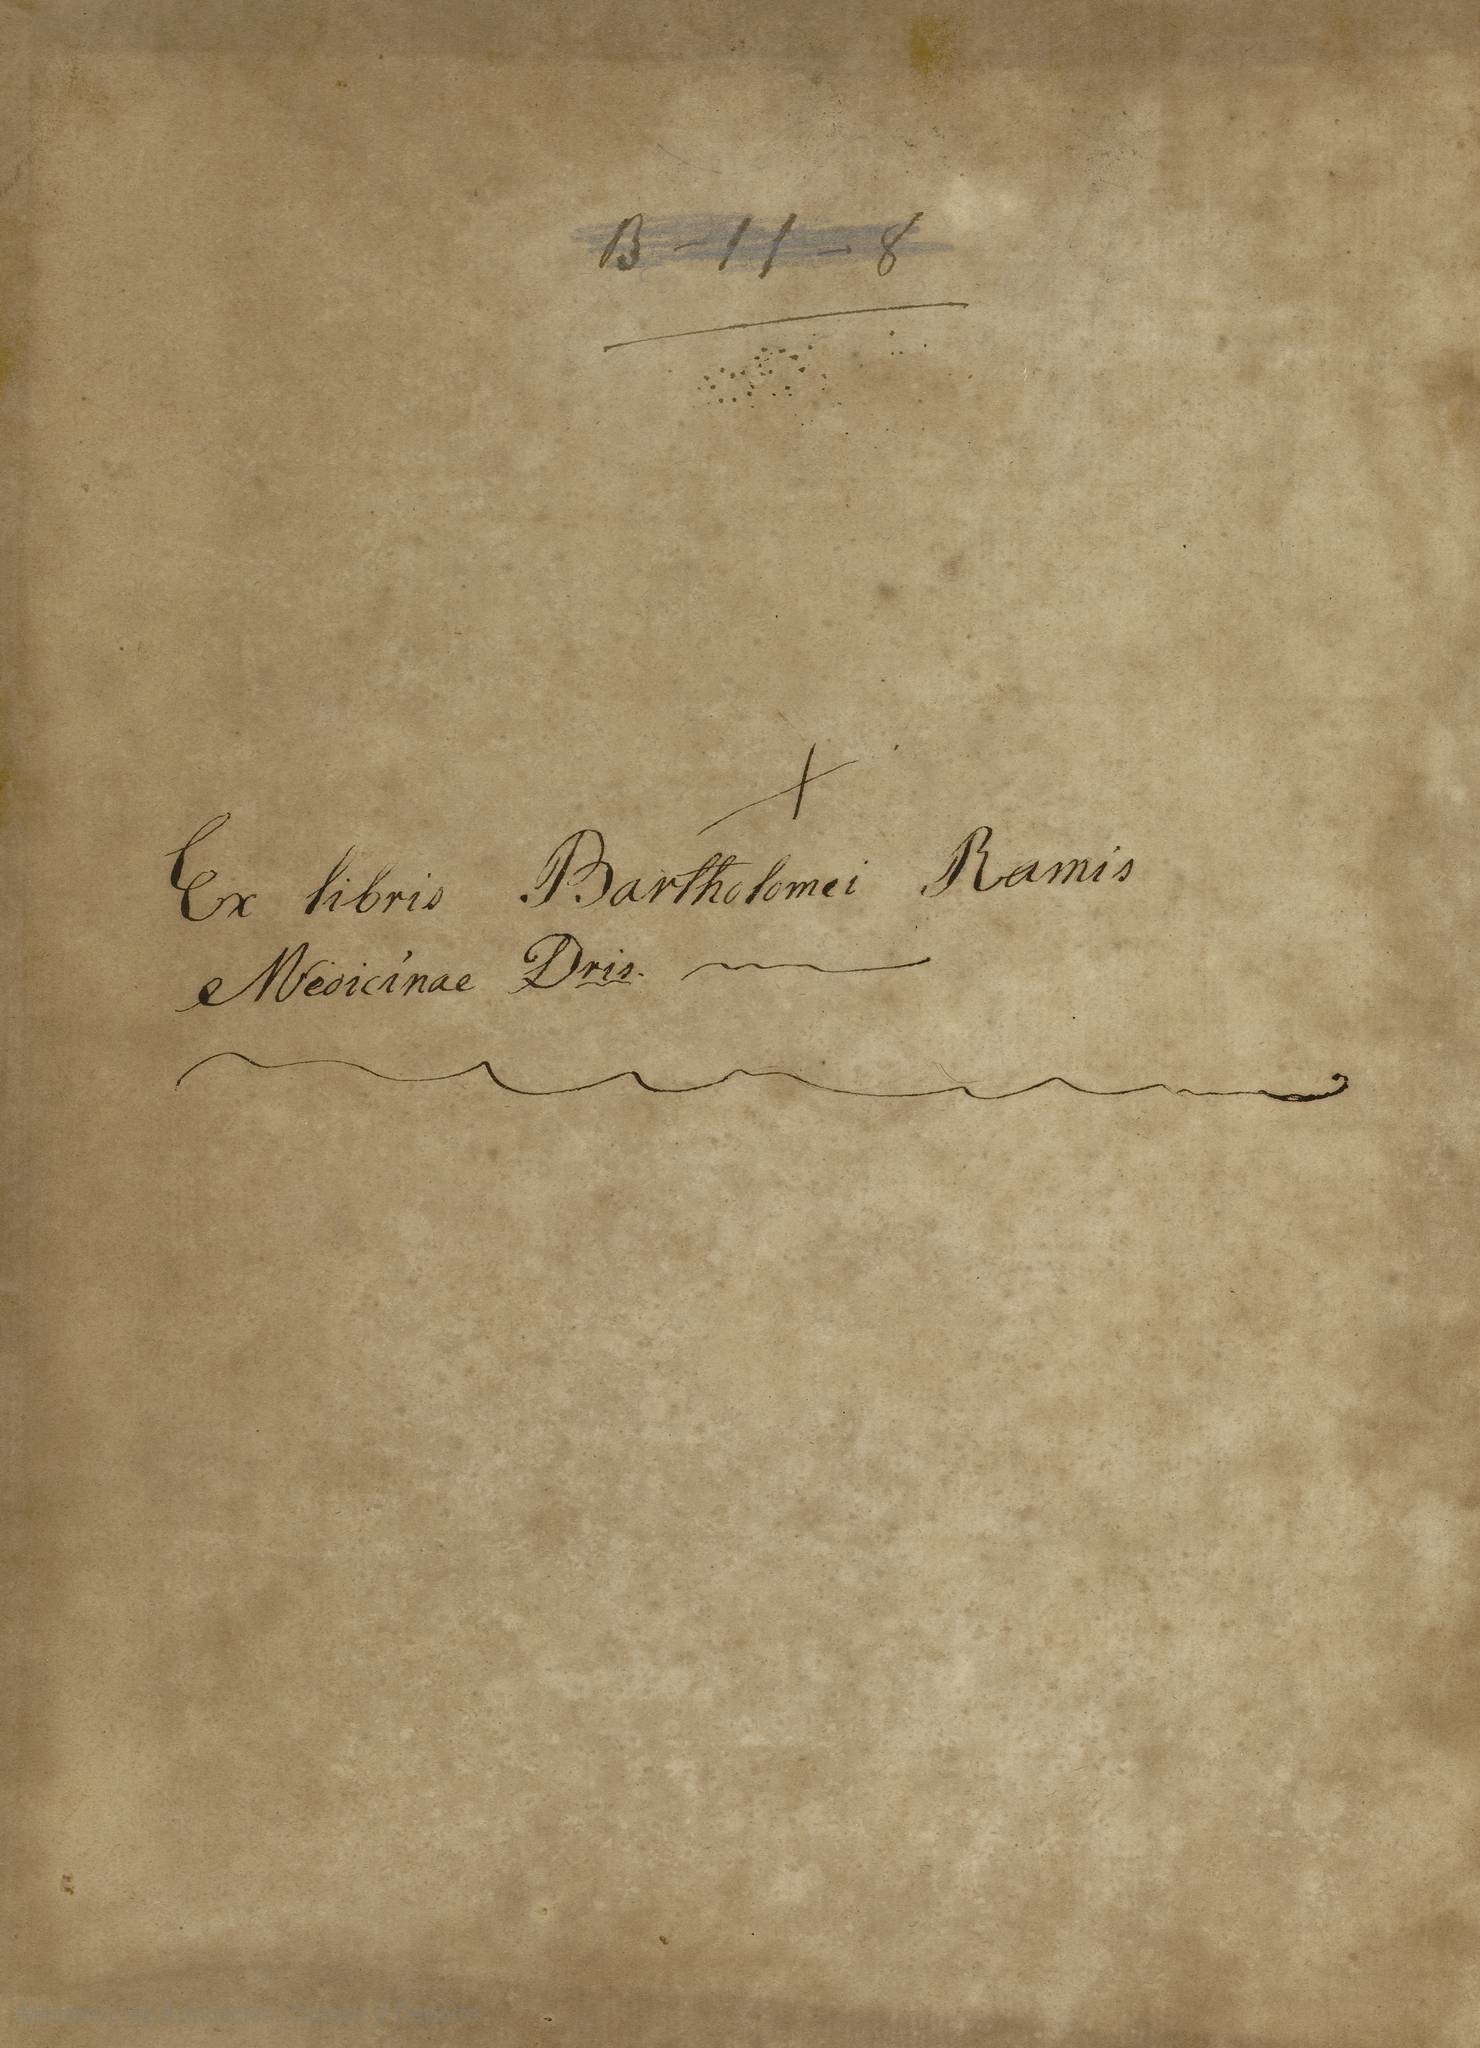 B - 11 - 8
Ex libris Bartholomei Ramis
Medicinae Dris.